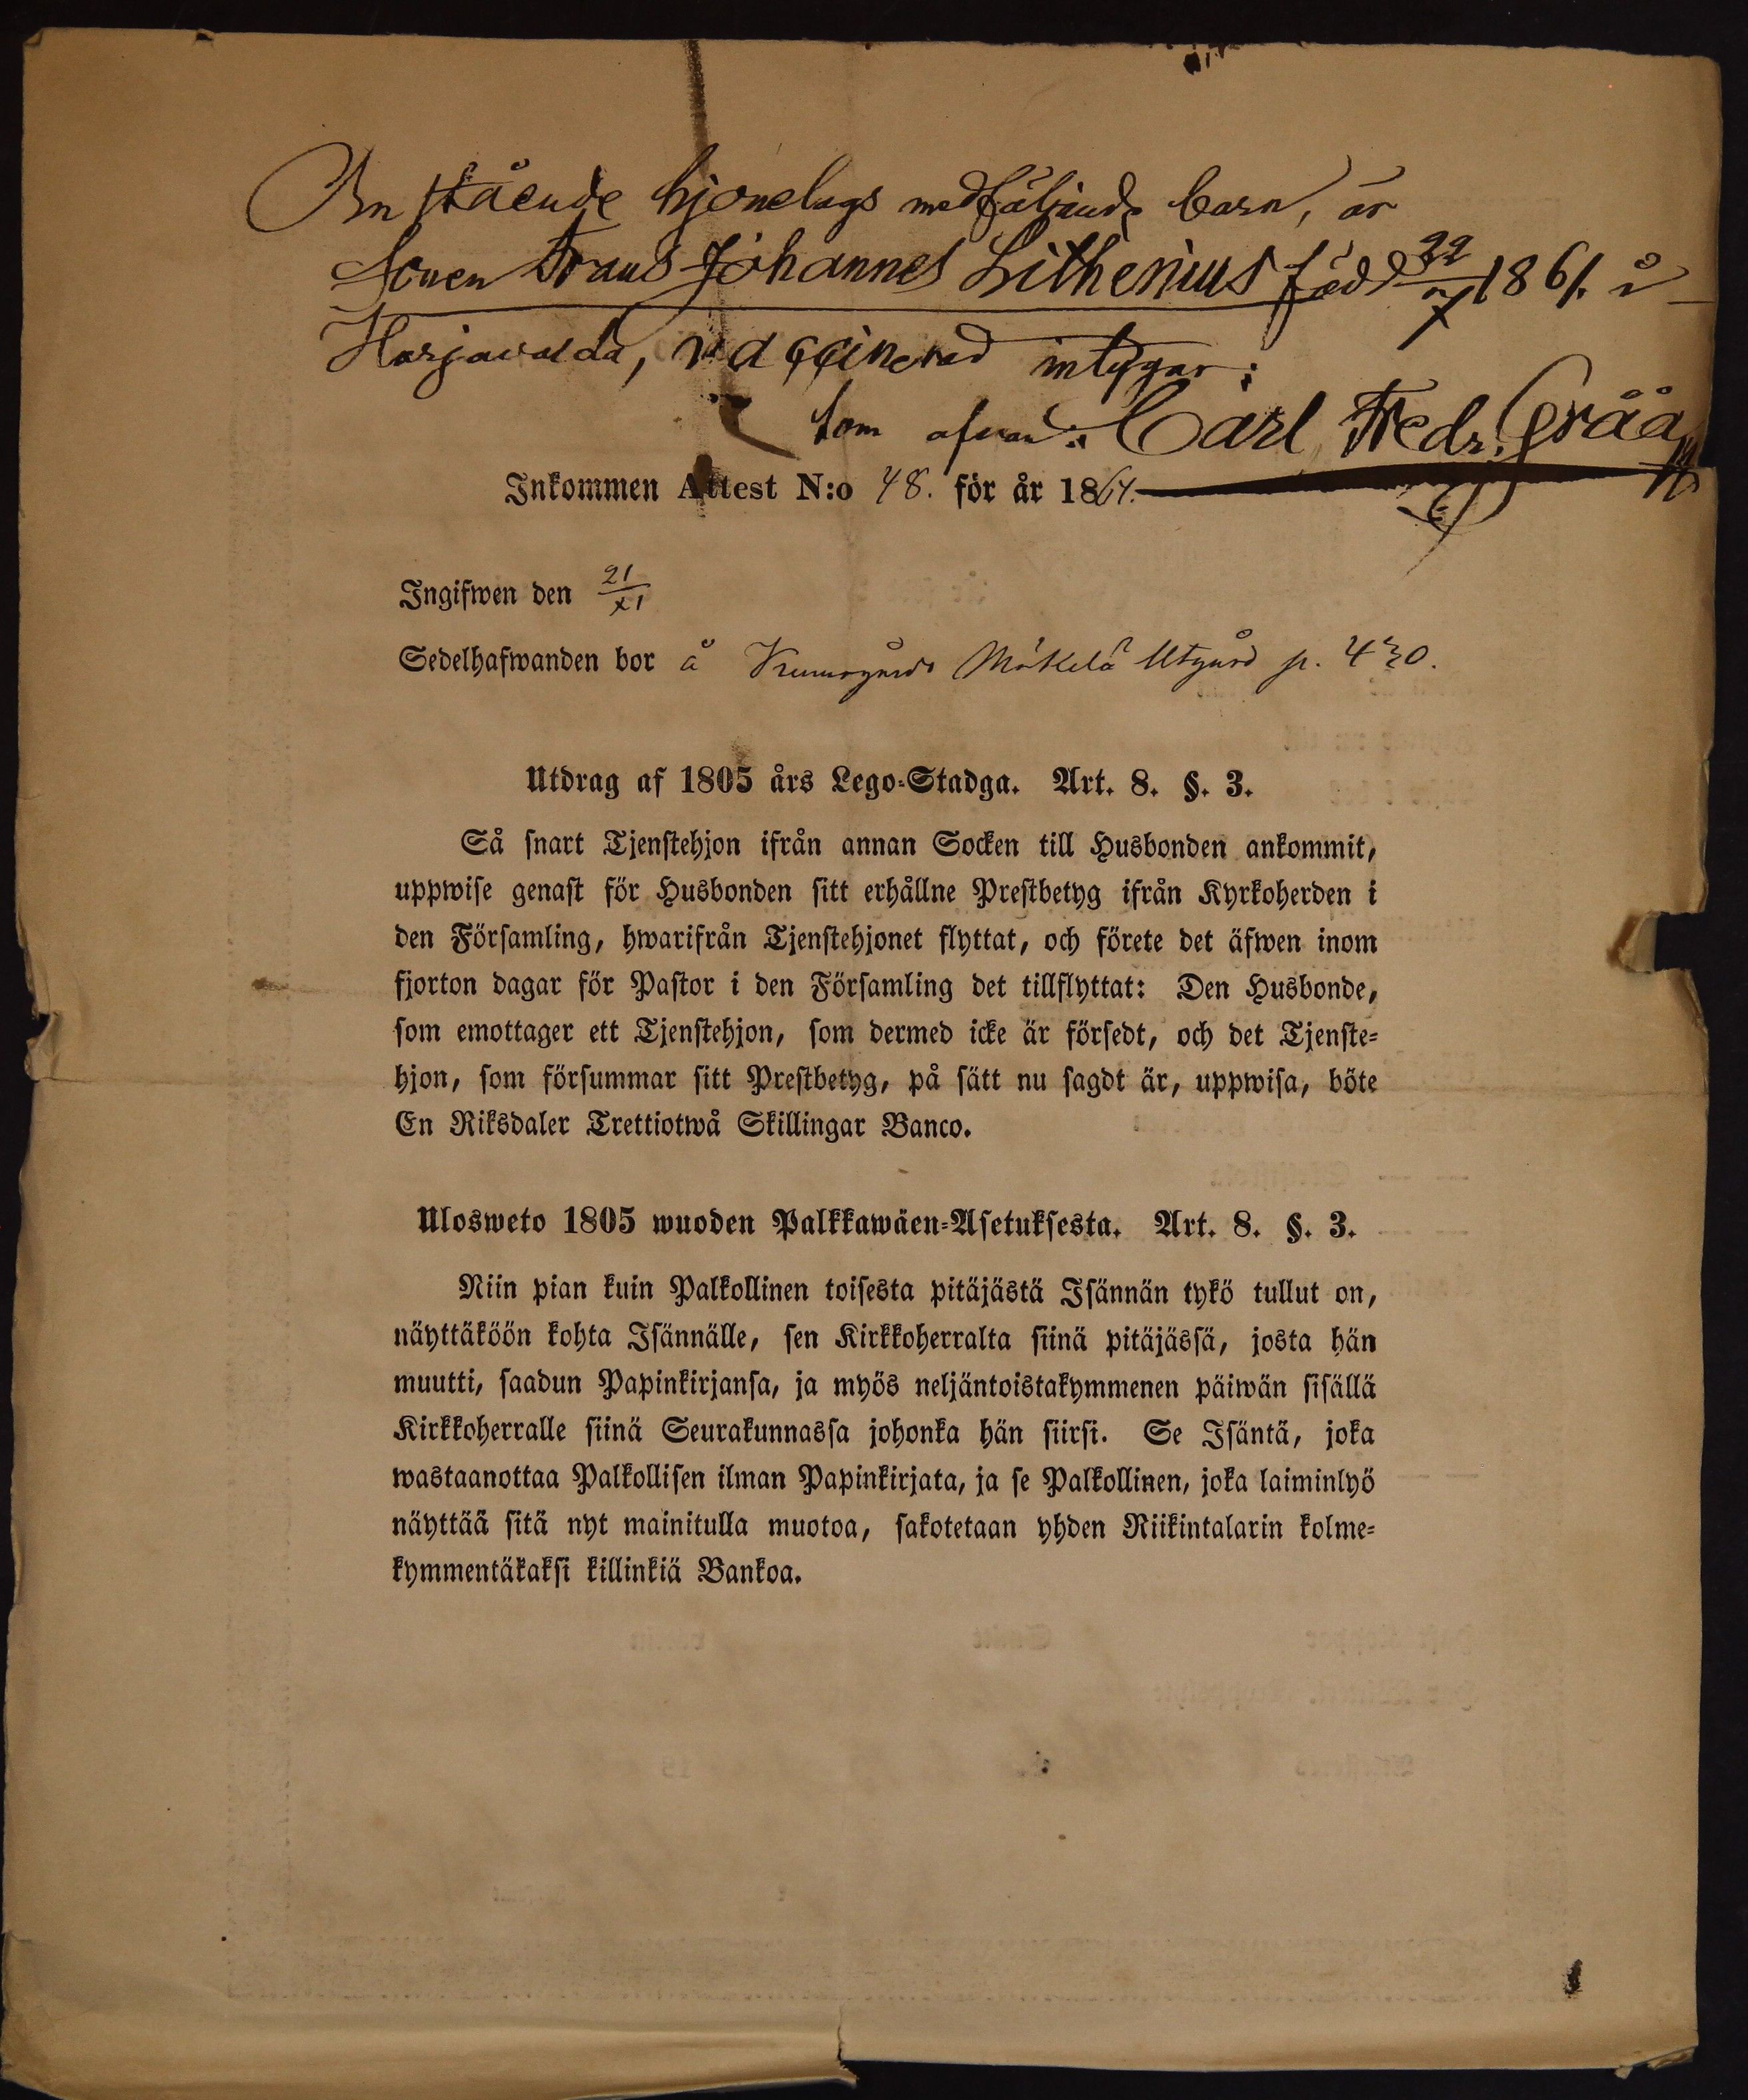 Om stående hjonelags medföljande barn, är
Sonen Frans Johannes Lithenius född 22/7 1861. i
Harjavalda, vaccinerad intygar;
som ofvan: Carl Fredr. Gråå
Inkommen Attest N:o 48. för år 1864.
Ingifwen den 21/XI
Sedelhafwanden bor å Mäkelä Utgård p. 430.
Utdrag af 1805 års Lego-Stadga. Art. 8. §. 3.
Så snart Tjenstehjon ifrån annan Socken till Husbonden ankommit,
uppwise genast för Husbonden sitt erhållne Prestbetyg ifrån Kyrkoherden i
den Församling, hwarifrån Tjenstehjonet flyttat, och förete det äfwen inom
fjorton dagar för Pastor i den Församling det tillflyttat: Den Husbonde,
som emottager ett Tjenstehjon, som dermed icke är försedt, och det Tjenste-
hjon, som försummar sitt Prestbetyg, på sätt nu sagdt är, uppwisa, böte
En Riksdaler Trettiotwå Skillingar Banco.
Ulosweto 1805 wuoden Palkkawäen-Asetuksesta. Art. 8. §. 3.
Niin pian kuin Palkollinen toisesta pitäjästä Isännän tykö tullut on,
näyttäköön kohta Isännälle, sen Kirkkoherralta siinä pitäjässä, josta hän
muutti, saadun Papinkirjansa, ja myös neljäntoistakymmenen päiwän sisällä
Kirkkoherralle siinä Seurakunnassa johonka hän siirsi. Se Isäntä, joka
wastaanottaa Palkollisen ilman Papinkirjata, ja se Palkollinen, joka laiminlyö
näyttää sitä nyt mainitulla muotoa, sakotetaan yhden Riikintalarin kolme-
kymmentäkaksi killinkiä Bankoa.